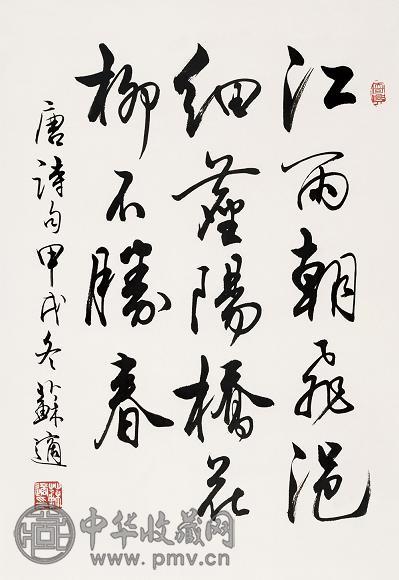 江雨朝飛浥
細塵陽橋花
柳不勝春
唐詩句甲戌冬蘇適
中华收藏网
www.pmv.cn